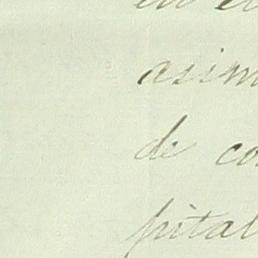 asim
de co
pital